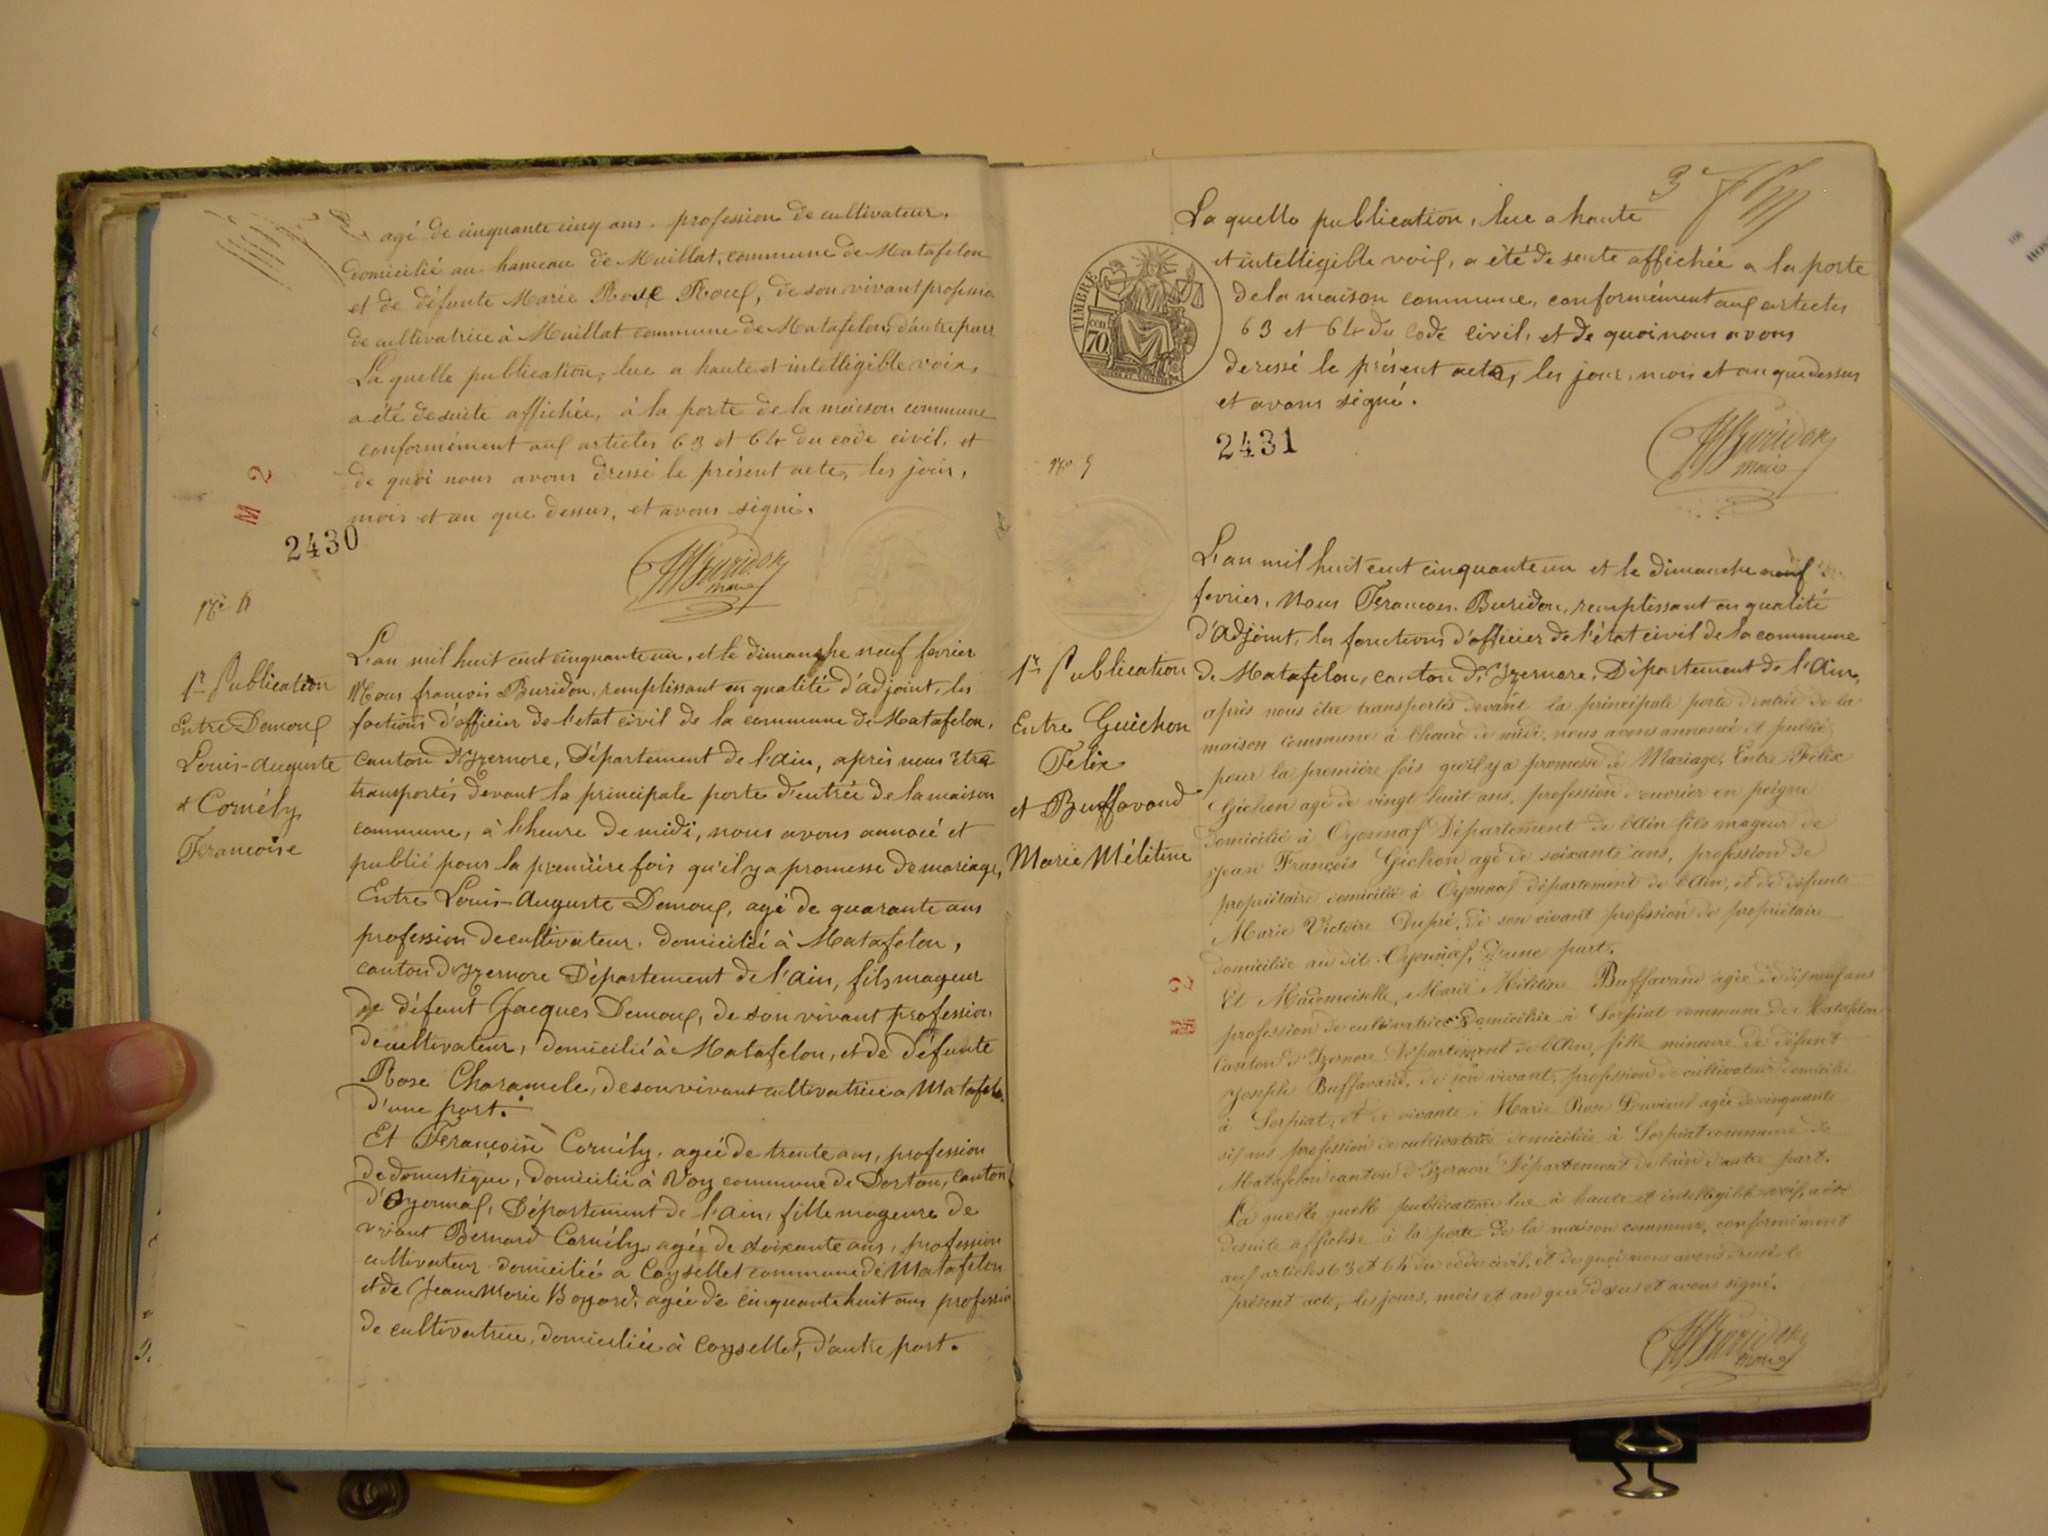 agé de cinquante cinq ans. profession de cultivateur.
domicilié au hameau de Muillat, commune de Matafelon
et de défunte Marie Rose Roux, de son vivant profession
de cultivatrice à Muillat commune de Matafelon, d'autre part
La quelle publication, lue a haute et intelligible voix,
a été de suite affichée, à la porte de la maison commune
conformément aux articles 63 et 64 du code civil, et
de quoi nous avons dressé le présent acte, les jour,
mois et an que dessus, et avons signé.
M 2
2430
Buridon
maire
N° 4
1re Publication
Entre Demoux
Louis-Auguste
et Cornély
Francoise
L'an mil huit cent cinquante un, et le dimanche neuf fevrier
Nous francois Buridon, remplissant en qualité d'adjoint, les
foctions d'officier de l'etat civil de la commune de Matafelon,
canton d'Izernore, Département de l'ain, après nous être
transportés devant la principale porte d'entrée de la maison
commune, à l'heure de midi, nous avons annocé et
publié pour la première fois qu'il y a promesse de mariage,
Entre Louis-Auguste Demoux, agé de quarante ans
profession de cultivateur. domicilié à Matafelon,
canton d'Izernore Département de l'ain, fils mageur
de défunt Jacques Demoux, de son vivant profession
de cultivateur, domicilié à Matafelon, et de défunte
Rose Charamele, de son vivant cultivatrice a Matafelo.
d'une part.
Et Francoise Cornély, agée de trente ans, profession
de domestique, domicilié à Voy commune de Dortan, canton
d'Oyonnax, Département de l'ain, fille mageure de
vivant Bernard Cornély, agée de soixante ans, profession
cultivateur domicilié a Coysellet commune de Matafelon
et de Jeanmarie Boyard, agée de cinquante huit ans profession
de cultivatrice, domiciliée à Coysellet, d'autre part.
3
La quelle publication, lue a haute
et intelligible voix, a été de suite affichée a la porte
de la maison commune, conformément aux articles
63 et 64 du code civil, et de quoi nous avons
deressé le présent acte, les jour, mois et an que dessus
et avons signé.
TIMBRE
70
2431
Buridon
maire
N° 5
1re Publication
Entre Guichon
Felix
et Buffavand
Marie Mélitine
M 2
L'an mil huit cent cinquante un et le dimanche neuf
fevrier, Nous Francois Buridon, remplissant en qualité
d'adjoint, les fonctions d'officier de l'état civil de la commune
de Matafelon, canton d'Izernore, Département de l'ain,
après nous être transportés devant la principale porte d'entrée de la
maison commune à l'heure de midi, nous avons annoncé et publié
pour la première fois qu'il y a promesse de Mariage, Entre Félix
Gichon agé de vingt huit ans, profession d'ouvrier en peigne
domicilié à Oyonnax Département de l'Ain fils mageur de
Jean François Gichon agé de soixante ans, profession de
propriétaire domicilié à Oyonnax département de l'Ain, et de défunte
Marie Victoire Dupré, de son vivant profession de propriétaire
domiciliée au dit Oyonnax, d'une part.
Et Mademoiselle, Marie Mélitine Buffavand agée de dixneuf ans
profession de cultivatrice domiciliée à Sorpiat commune de Matafelon
Canton d'Izernore Département de l'Ain, fille mineure de défunt
Joseph Buffavand, de son vivant, profession de cultivateur domicilié
à Sorpiat, et de vivante Marie Rose agée de cinquante
six ans profession de cultivatrice domiciliée à Sorpiat commune de
Matafelon canton d'Izernore Département de l'ain d'autre part.
La quelle quelle publication lue à haute et intelligible voix, a été
desuite affichée à la porte de la maison commune, conformément
aux articles 63 et 64 du code civil, et de quoi nous avons dressé le
présent acte, les jours, mois et an que dessus et avons signé.
Buridon
maire